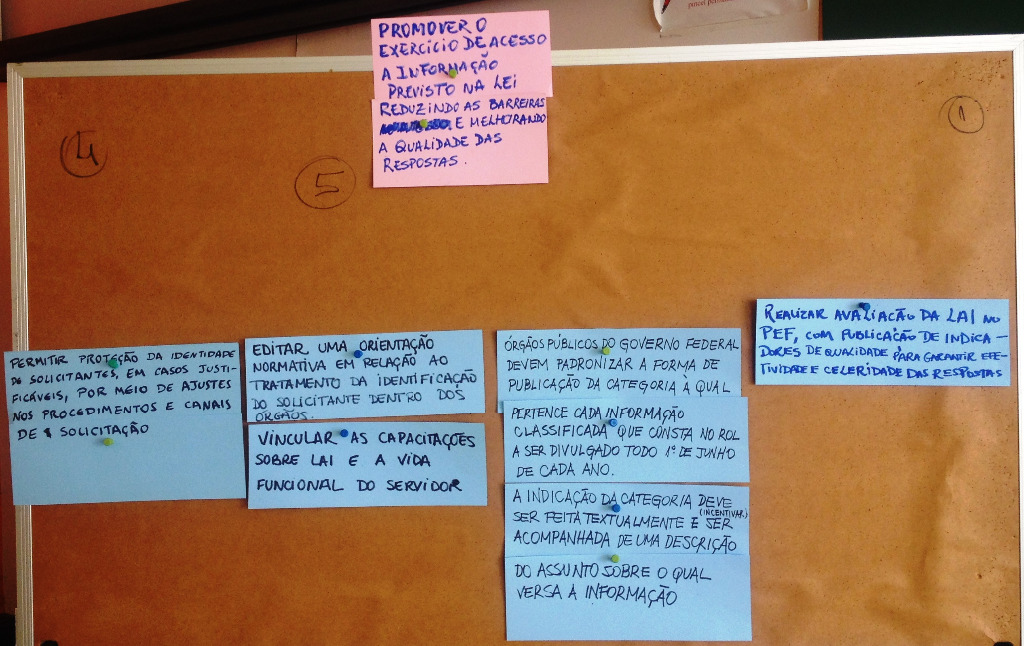 PROMOVER O
EXERCÍCIO DE ACESSO
A INFORMAÇÃO
PREVISTO NA LEI
REDUZINDO AS BARREIRAS
E MELHORANDO
A QUALIDADE DAS
RESPOSTAS.
4
5
1
PERMITIR PROTEÇÃO DA IDENTIDADE
DE SOLICITANTES, EM CASOS JUSTI-
FICÁVEIS, POR MEIO DE AJUSTES
NOS PROCEDIMENTOS E CANAIS
DE SOLICITAÇÃO
EDITAR UMA ORIENTAÇÃO
NORMATIVA EM RELAÇÃO AO
TRATAMENTO DA IDENTIFICAÇÃO
DO SOLICITANTE DENTRO DOS
ORGÃOS.
VINCULAR AS CAPACITAÇÇÕES
SOBRE LAI E A VIDA
FUNCIONAL DO SERVIDOR
ÓRGÃOS PÚBLICOS DO GOVERNO FEDERAL
DEVEM PADRONIZAR A FORMA DE
PUBLICAÇÃO DA CATEGORIA À QUAL
PERTENCE CADA INFORMAÇÃO
CLASSIFICADA QUE CONSTA NO ROL
A SER DIVULGADO TODO 1º DE JUNHO
DE CADA ANO.
A INDICAÇÃO DA CATEGORIA DEVE
(INCENTIVAR)
SER FEITA TEXTUALMENTE E SER
ACOMPANHADA DE UMA DESCRIÇÃO
DO ASSUNTO SOBRE O QUAL
VERSA A INFORMAÇÃO
REALIZAR AVALIAÇÃO DA LAI NO
PEF, COM PUBLICAÇÃO DE INDICA-
DORES DE QUALIDADE PARA GARANTIR EFE-
TIVIDADE E CELERIDADE DAS RESPOSTAS